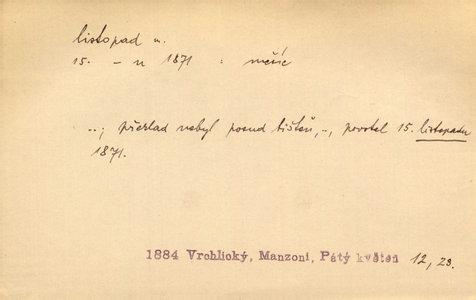 listopad u.
15. – u 1871 : měsíc
..; překlad nebyl posud tištěn, .., povstal 15. listopadu
1871.
1884 Vrchlický, Manzoni, Pátý květen 12, 23.